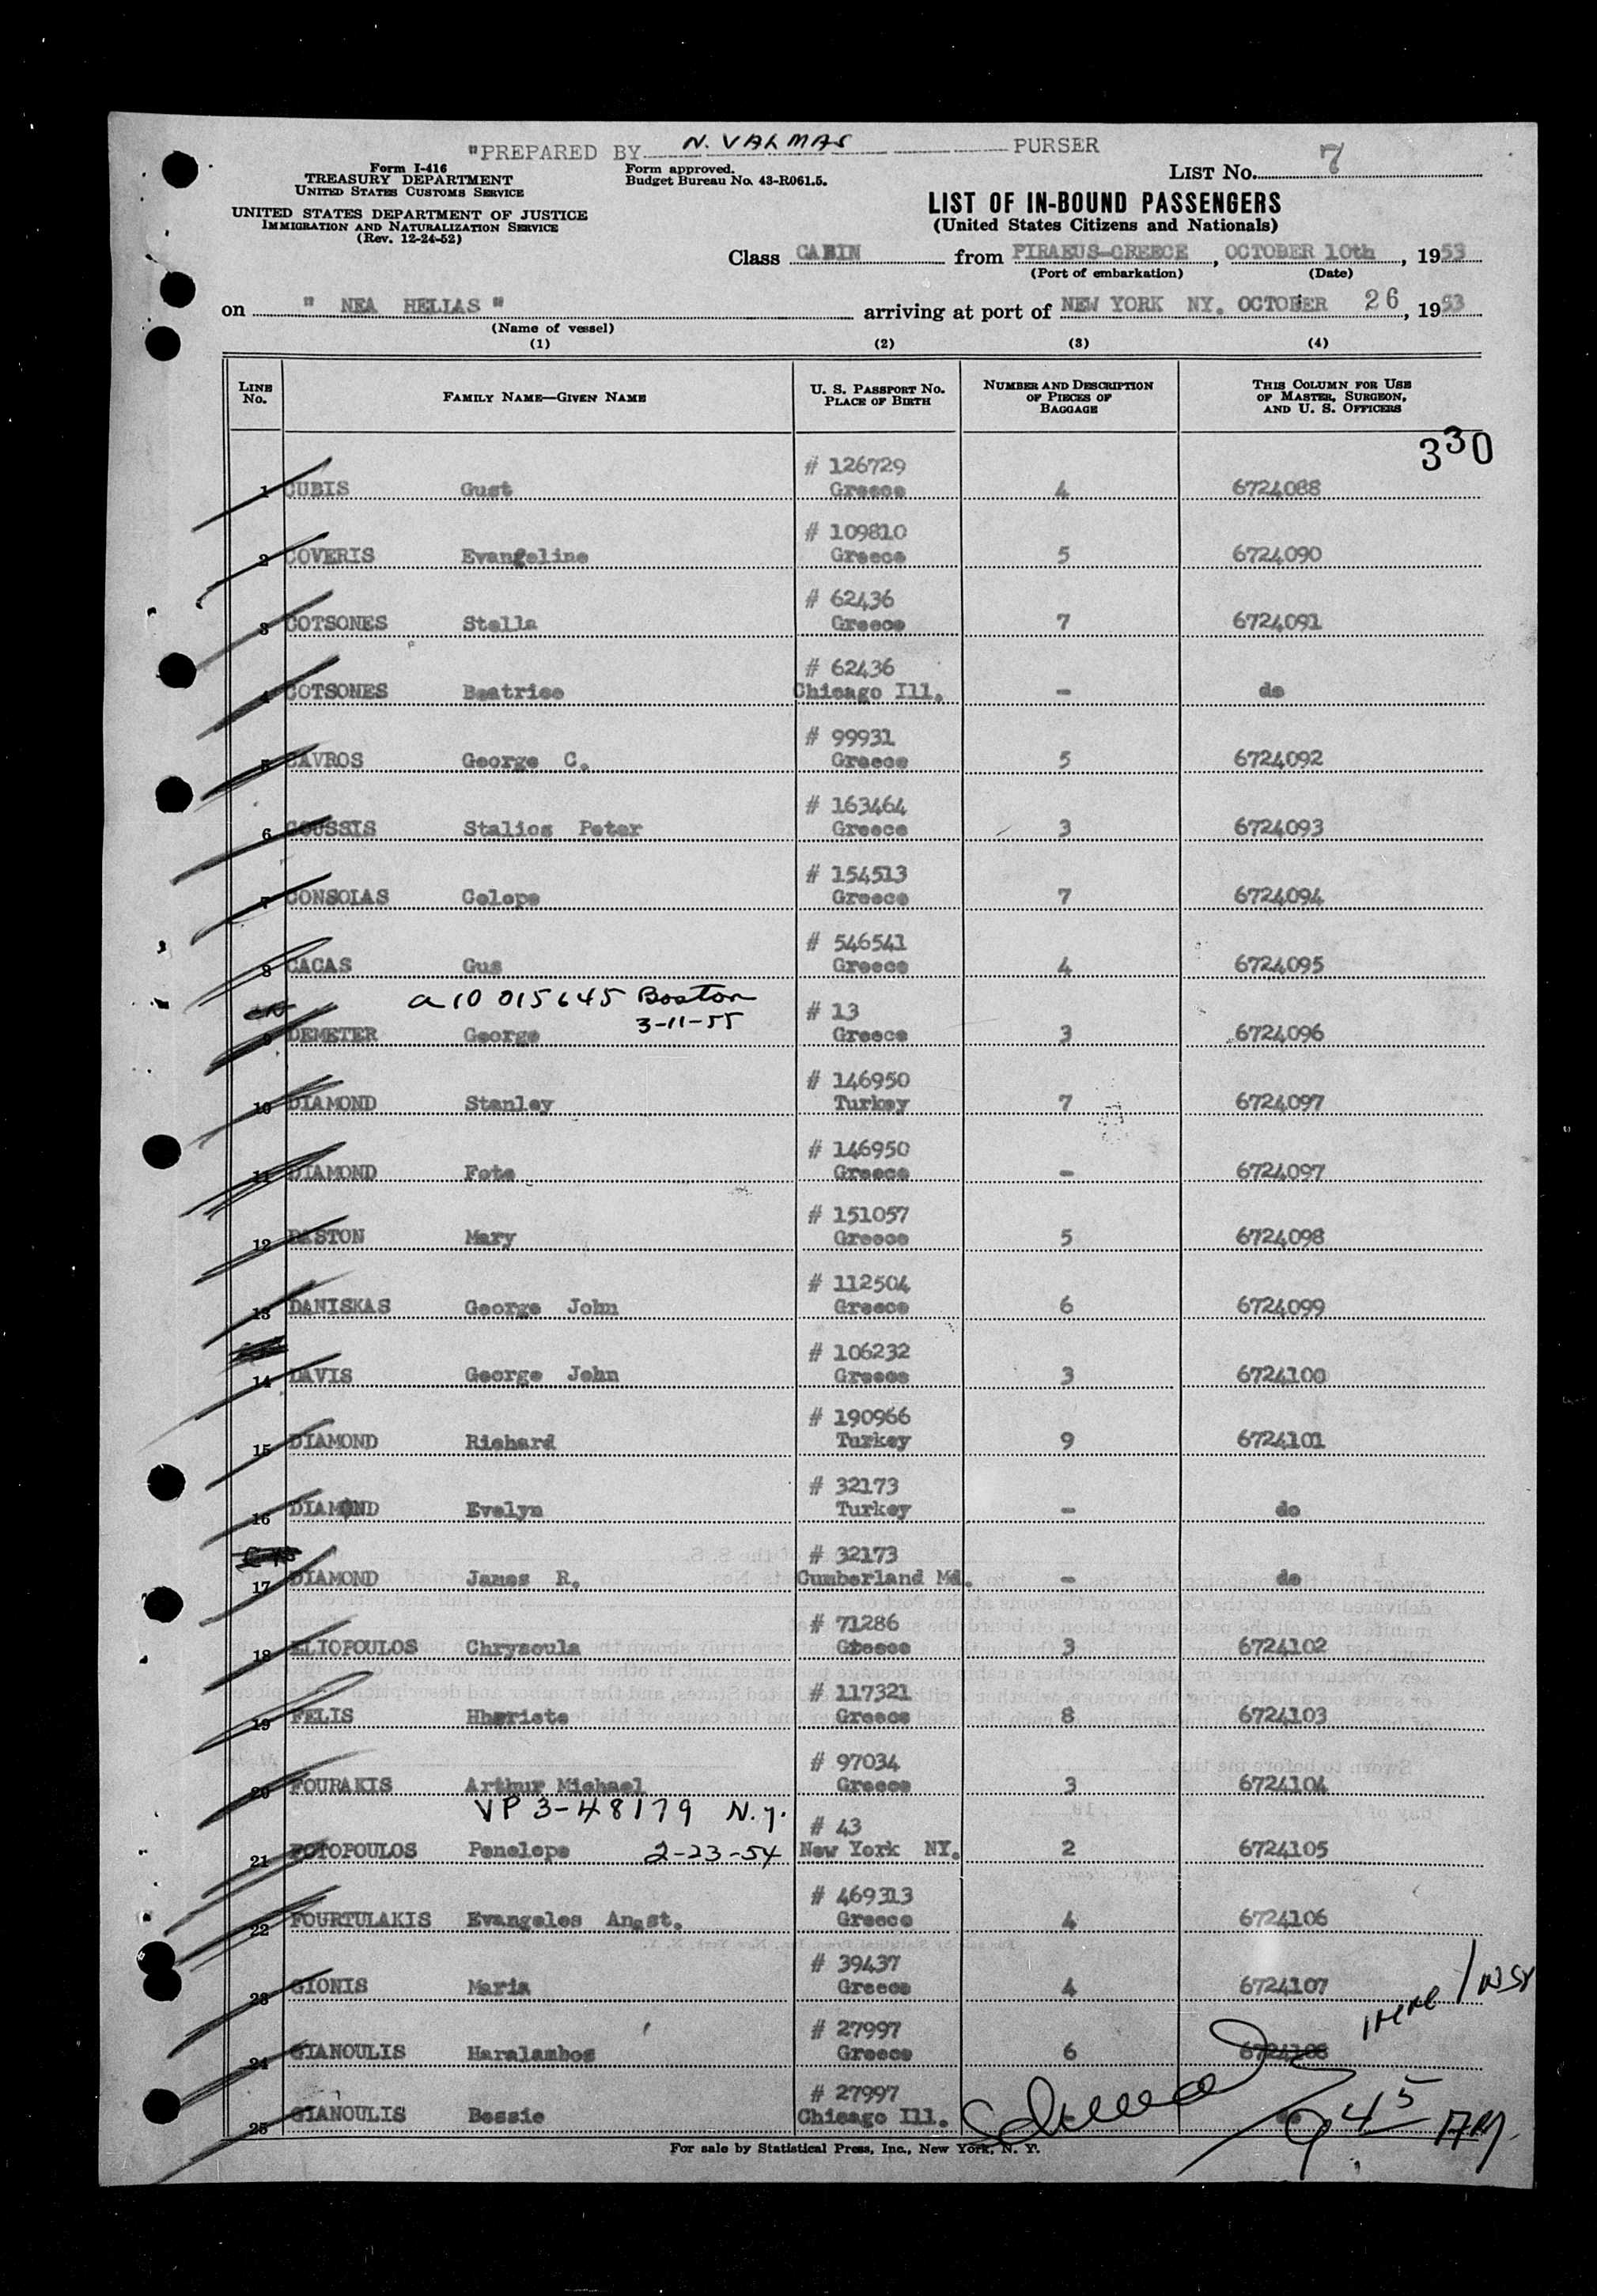 "PREPARED BY N. VALMAS PURSER
Form I-416
TREASURY DEPARTMENT
UNITED STATES CUSTOMS SERVICE
Form approved.
Budget Bureau No. 43-R061.5.
LIST NO. 7
UNITED STATES DEPARTMENT OF JUSTICE
IMMIGRATION AND NATURALIZATION SERVICE
(Rev. 12-24-52)
LIST OF IN-BOUND PASSENGERS
(United States Citizens and Nationals)
Class CABIN from PIRAEUS-GREECE, OCTOBER 10th, 1953
(Port of embarkation) (Date)
on " NEA HELLAS " arriving at port of NEW YORK NY. OCTOBER 26, 1953
(Name of vessel)
(1) (2) (3) (4)
LINE NO. FAMILY NAME—GIVEN NAME U. S. PASSPORT NO. PLACE OF BIRTH NUMBER AND DESCRIPTION OF PIECES OF BAGGAGE THIS COLUMN FOR USE OF MASTER, SURGEON, AND U. S. OFFICERS
330
# 126729
1 CUBIS Gust Greece 4 6724088
# 109810
2 COVERIS Evangeline Greece 5 6724090
# 62436
3 COTSONES Stella Greece 7 6724091
# 62436
4 COTSONES Beatrice Chicago Ill. - do
# 99931
5 CAVROS George C. Greece 5 6724092
# 163464
6 COUSSIS Stalios Peter Greece 3 6724093
# 154513
7 CONSOLAS Golope Greece 7 6724094
# 546541
8 CACAS Gus Greece 4 6724095
a10 015645 Boston # 13
3-11-55
9 DEMETER George Greece 3 6724096
# 146950
10 DIAMOND Stanley Turkey 7 6724097
# 146950
11 DIAMOND Fote Greece - 6724097
# 151057
12 DASTON Mary Greece 5 6724098
# 112504
13 DANISKAS George John Greece 6 6724099
# 106232
14 DAVIS George John Greece 3 6724100
# 190966
15 DIAMOND Richard Turkey 9 6724101
# 32173
16 DIAMOND Evelyn Turkey - do
# 32173
17 DIAMOND James R. Cumberland Md. - do
# 71286
18 ELIOPOULOS Chrysoula Greece 3 6724102
# 117321
19 FELIS Hhariete Greece 8 6724103
# 97034
20 FOURAKIS Arthur Michael Greece 3 6724104
VP 3-48179 N.Y. # 43
21 FOTOPOULOS Penelope 2-23-54 New York NY. 2 6724105
# 469313
22 FOURTULAKIS Evangelos Anast. Greece 4 6724106
# 39437
23 GIONIS Maria Greece 4 6724107
# 27997
24 GIANOULIS Haralambos Greece 6 6724108
# 27997
25 GIANOULIS Bessie Chicago Ill. do
945 AM
For sale by Statistical Press, Inc., New York, N. Y.